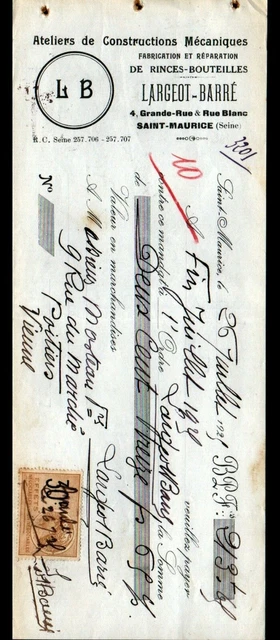 Ateliers de Constructions Mécaniques
FABRICATION ET RÉPARATION
DE RINCES-BOUTEILLES
LARGEOT-BARRÉ
4, Grande-Rue & Rue Blanc
SAINT-MAURICE (Seine)
R. C. Seine 257.706 - 257.707
L B
3201
10
Saint-Maurice, le 26 Juillet 192 B.P.F.
Au Fin Juillet veuillez payer
contre ce mandat à l'Ordre Largeot Barré la Somme
de Deux cent
Valeur en marchandises
A Messieurs Frs Largeot Barré
9 Rue du Marché
Poitiers
Vienne
N°